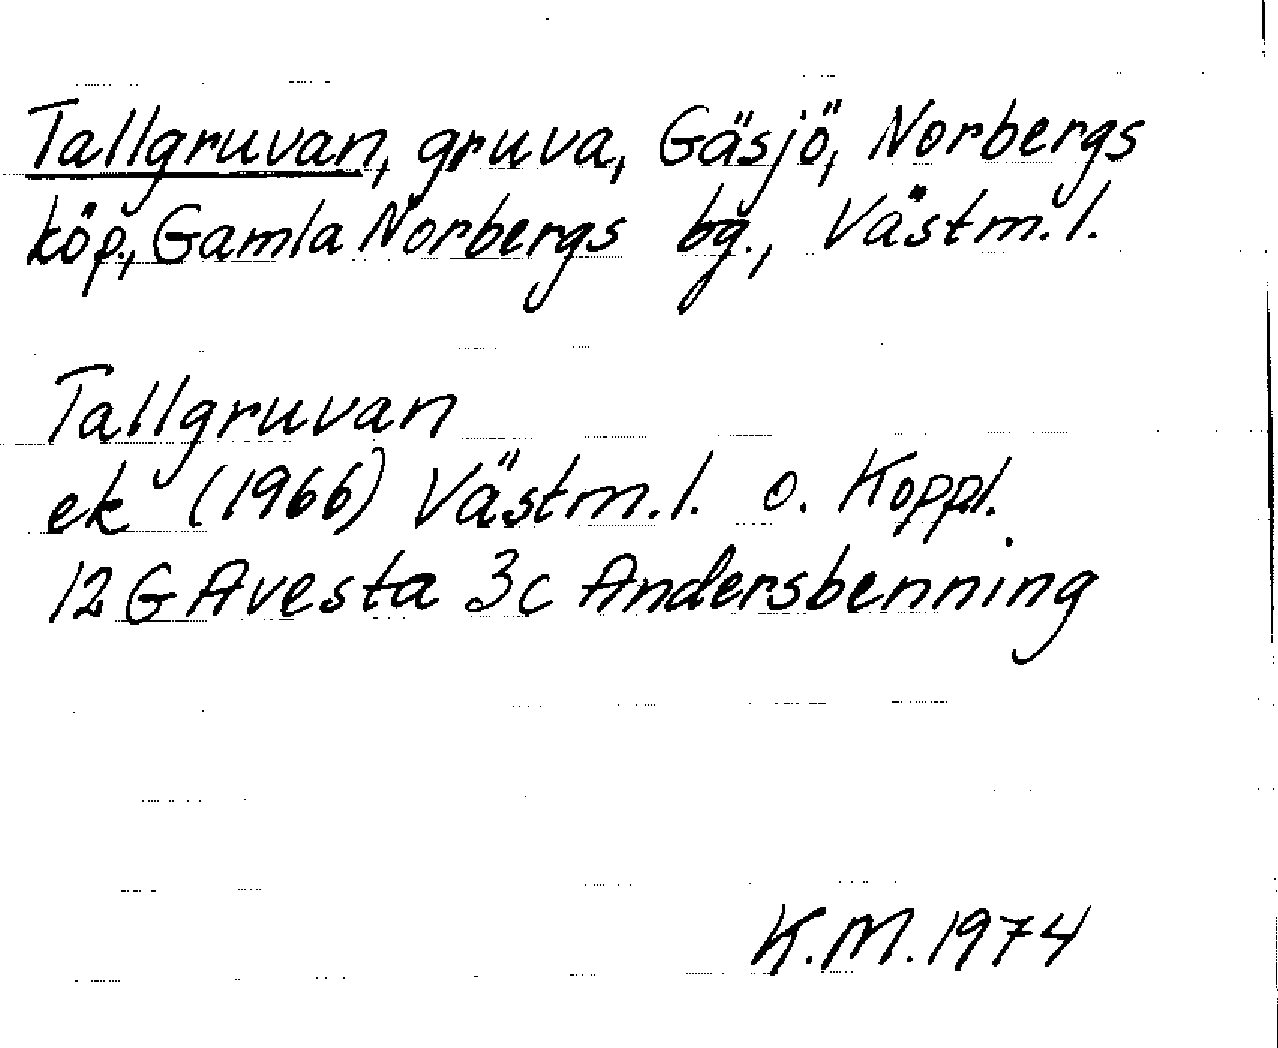 Tallgruvan, gruva, Gäsjö, Norbergs
köp., Gamla Norbergs bg., Västm.l.
Tallgruvan
ek (1966) Västm.l. o. Koppl.
12G Avesta 3c Andersbenning
K.M. 1974